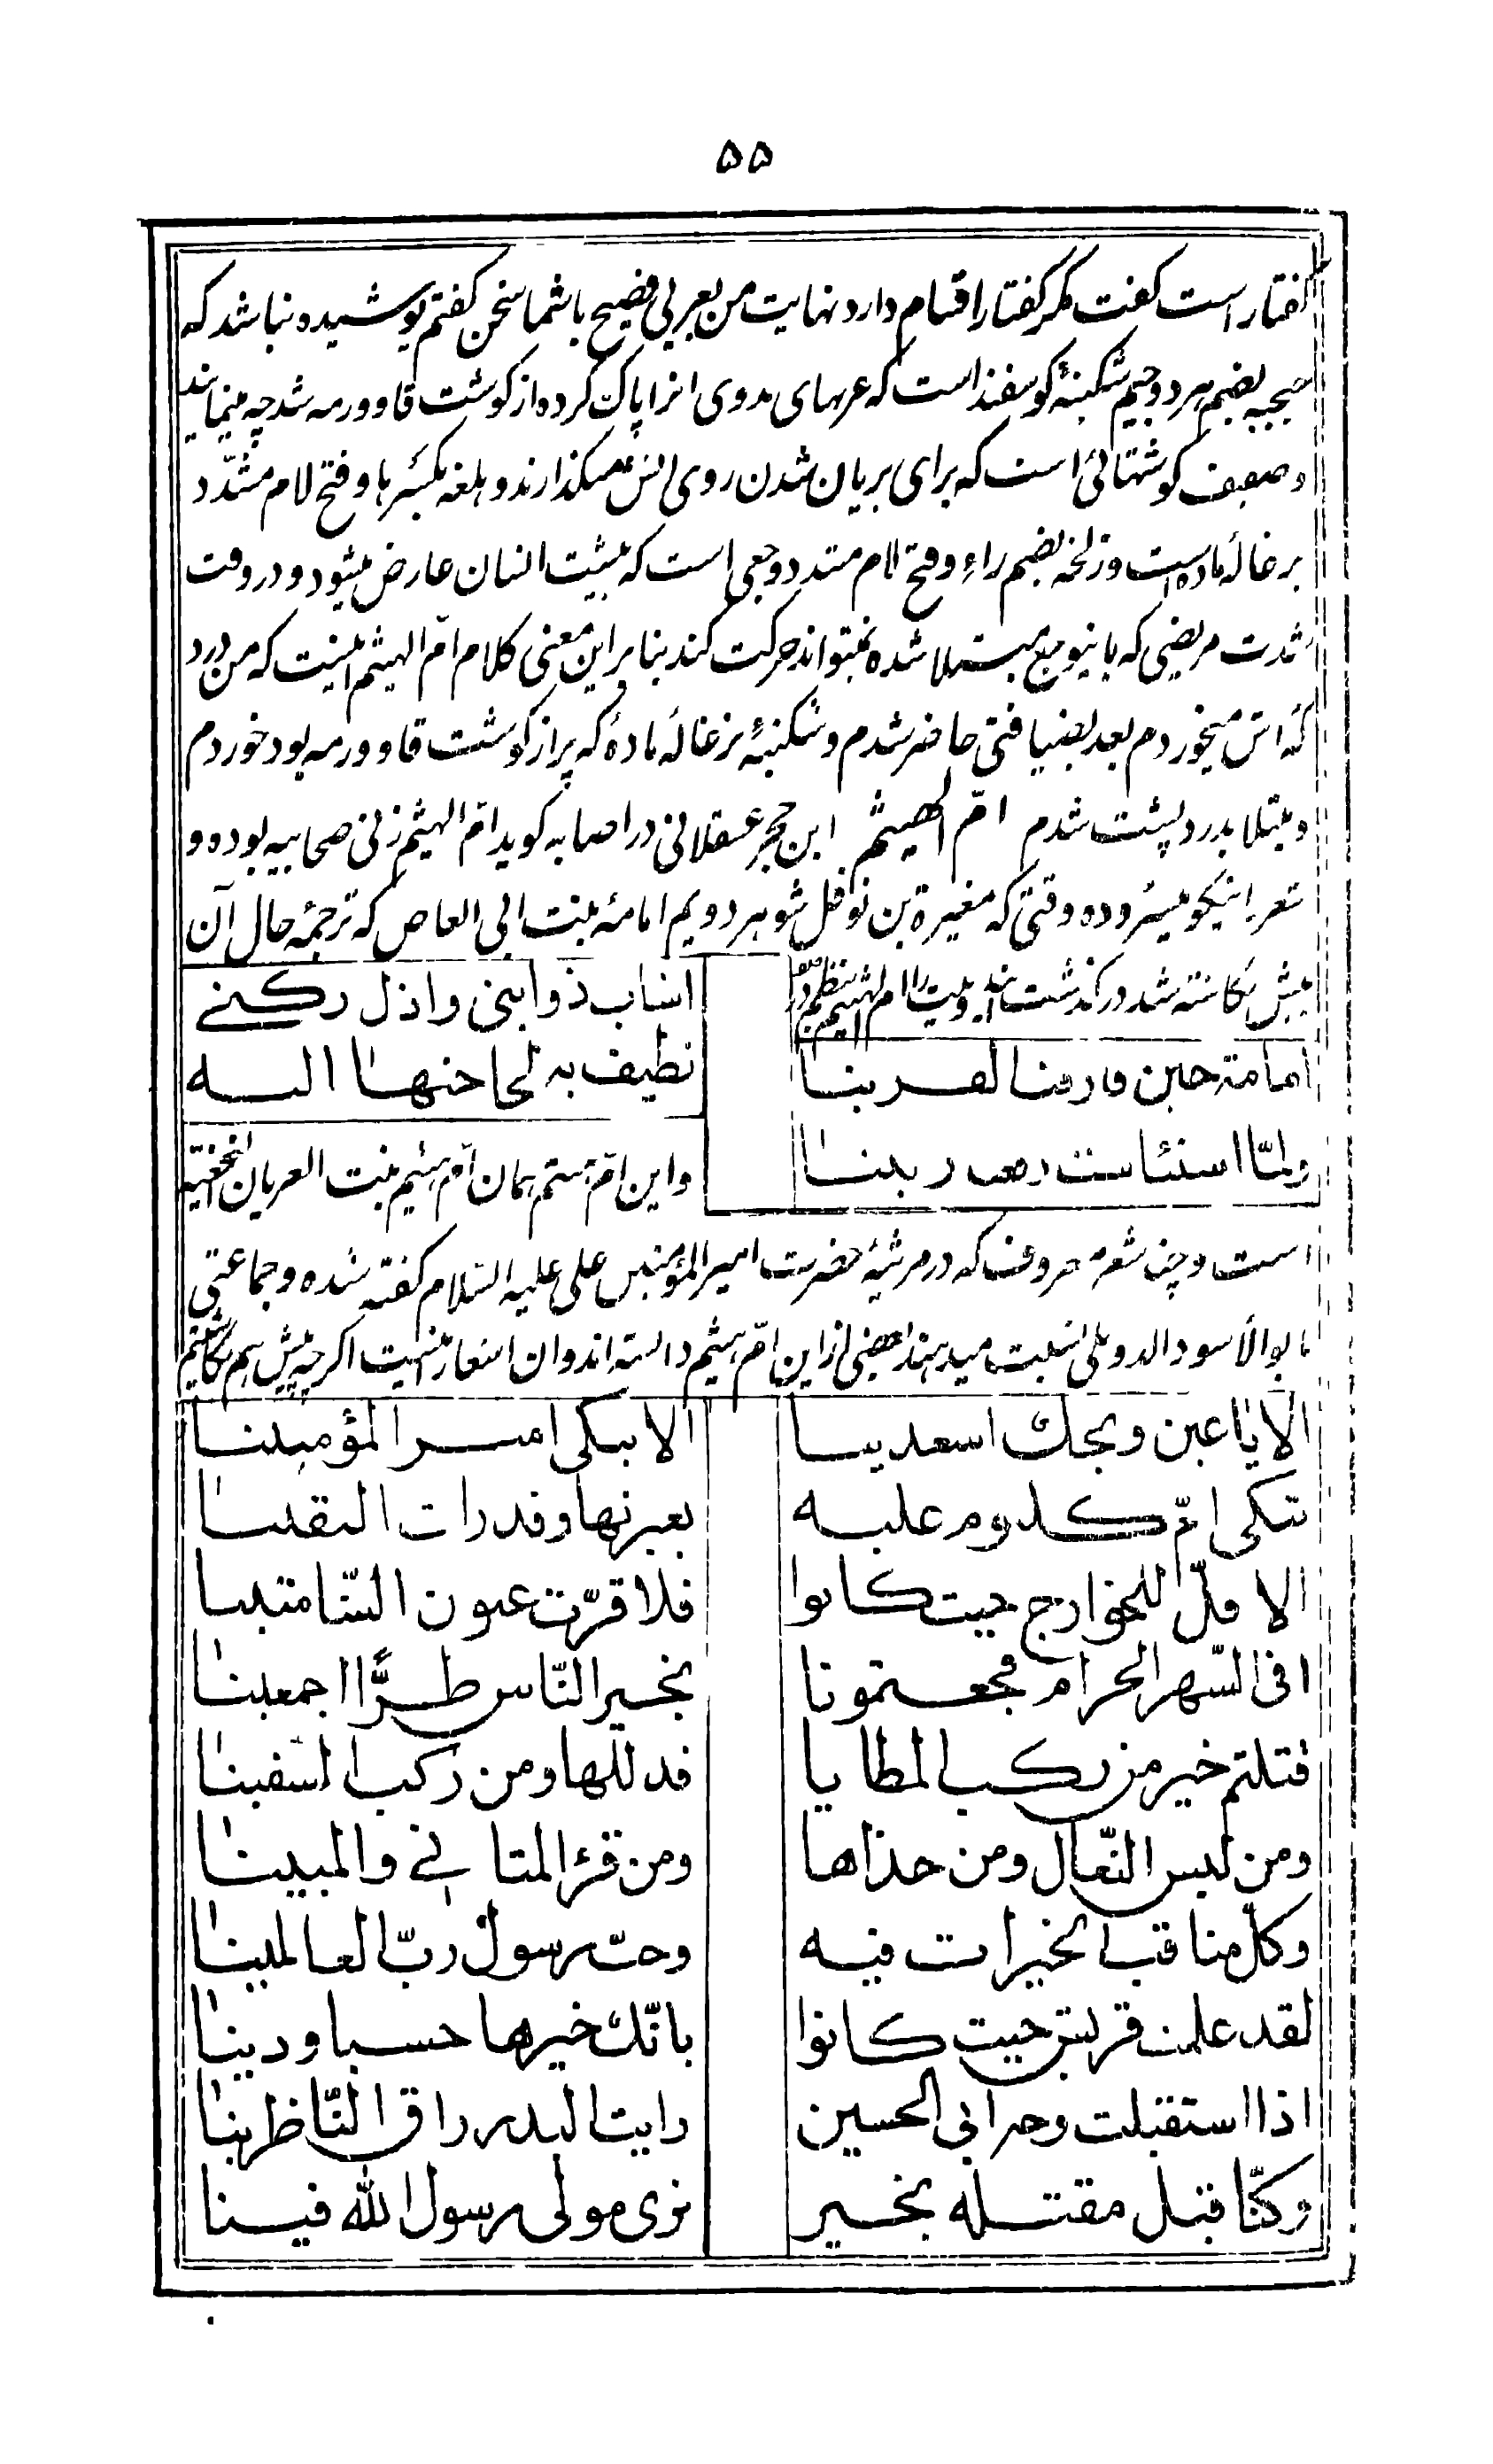 ۵۵
گفتار است گفت مگر گفتار اقسام دارد نهایت من بعربی فصیح با شما سخن گفتم پوشیده نباشد که
جبجبه بضم هر دو جیم شکنبهٔ گوسفند است که عربهای بدوی انرا پاک کرده از گوشت قاوورمه شد چه مینمایند
و صفیف گوشتهائی است که برای بریان شدن روی اتش میگذارند و هلعه بکسر ها و فتح لام مشدّد
بزغالهٔ ماده است و زلخه بضم زاء و فتح لام مشدد وجعی است که بپشت انسان عارض میشود و در وقت
شدت مریضی که باینوجع مبتلا شده نمیتواند حرکت کند بنا براین معنی کلام امّ الهیثم اینست که من درد
که اش میخوردم بعد بضیافتی حاضر شدم و شکنبهٔ بزغالهٔ مادهٔ که پر از گوشت قاوورمه بود خوردم
و مبتلا بدرد پشت شدم امّ الهیثم ابن حجر عسقلانی در اصابه گوید امّ الهیثم زنی صحابیه بوده و
شعر را نیکو میسروده وقتی که مغیرة بن نوفل شوهر دویم امامهٔ بنت ابی العاص که ترجمهٔ حال آن
پیش نگاشته شد درگذشت این دو بیت را ام الهیثم بنظم در
اشاب ذوابتی و اذل رکنی
امامة حین فارقنا القرینا
تطیف به لحاجتها الیه
ولمّا استیأست رفعت رنینا
و این امّ هیثم همان امّ هیثم بنت العریان النخعیّه
است و چند شعر معروف که در مرثیهٔ حضرت امیر المؤمنین علی علیه السّلام گفته شده و جماعتی
بابو الأسود الدوئلی نسبت میدهند بعضی از این امّ هیثم دانسته‌اند و ان اشعار اینست اگر چه پیش هم نگاشتیم
الا یا عین ویحك اسعدینا الا تبكی امیر المؤمنینا
تبكی امّ كلثوم علیه بعبرتها و قد رات الیقینا
الا قل للخوارج حیث كانوا فلا قرّت عیون الشّامتینا
افی الشّهر الحرام فجعتمونا بخیر النّاس طرًّا اجمعینا
قتلتم خیر من ركب المطایا فذللها و من ركب السّفینا
ومن لبس النّعال ومن حذاها ومن قرئ المثانی والمبینا
وكلّ مناقب الخیرات فیه وحبّ رسول ربّ العالمینا
لقد علمت قریش حیث كانوا بانّك خیرها حسبا و دینا
اذا استقبلت وجه ابی الحسین رایت البدر راق النّاظرینا
وكنّا قبل مقتله بخیر نری مولی رسول الله فینا